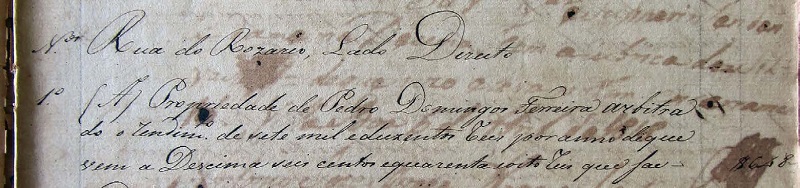 N.os Rua do Rozario, Lado Direito
1.º (A) Propriedade de Pedro Domingos Ferreira arbitra
do o de sete mil eduzentos reis poranno deque
vem a Descima seis centos equarenta eoito reis que sae - 648